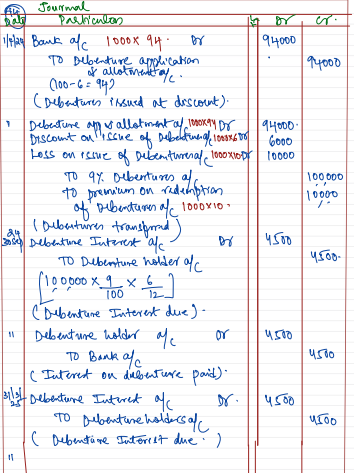 94
Journal
Date Particulars Lf Dr Cr.
1/4/24 Bank a/c 1000 x 94. Dr 94000
To Debenture application 94000
& allotment a/c.
(100-6=94)
(Debentures issued at discount).
" Debenture app & allotment a/c 1000x94 Dr 94000.
Discount on issue of Debenture a/c 1000x6 Dr 6000
Loss on issue of Debenture a/c 1000x10 Dr 10000
To 9% Debentures a/c 100000
To premium on redemption 10000
of Debentures a/c 1000x10.
(Debentures transferred)
24
30 Sep Debenture Interest a/c Dr 4500
To Debenture holder a/c 4500.
[100000 x 9/100 x 6/12]
(Debenture Interest due).
" Debenture holder a/c Dr 4500
To Bank a/c 4500
(Interest on debenture paid).
31/3/25 Debenture Interest a/c Dr. 4500
To Debenture holders a/c 4500
(Debenture Interest due.)
"